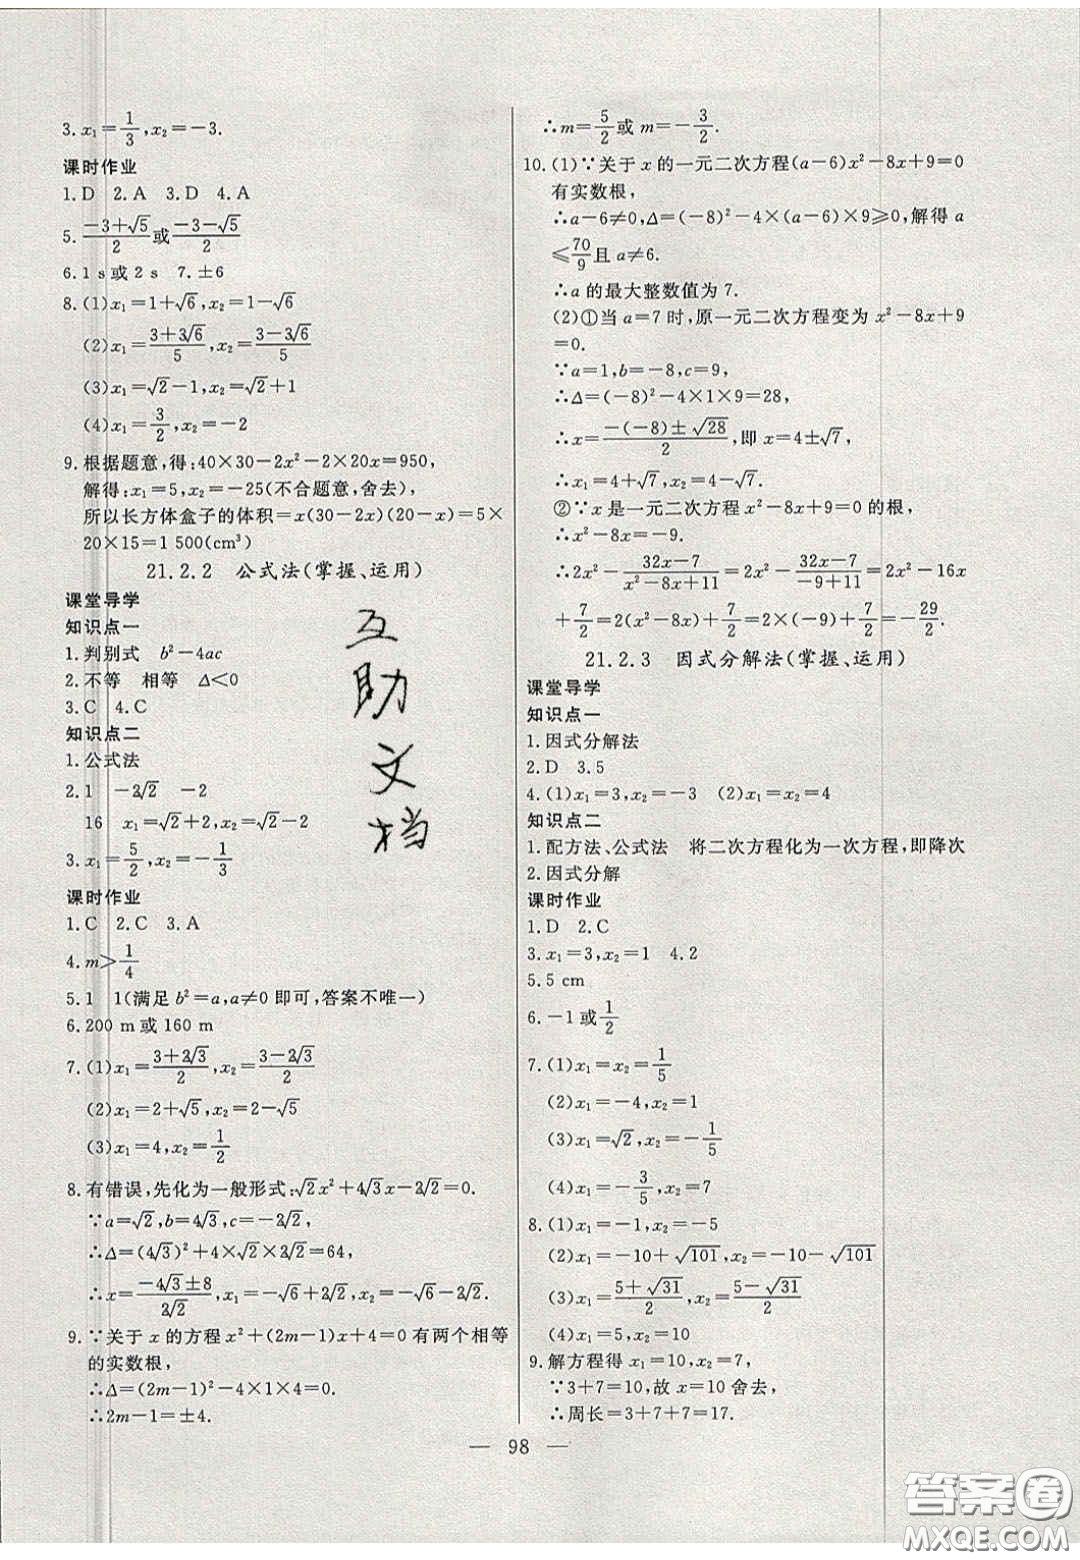 3. x₁=1/3, x₂=-3.
课时作业
1. D　2. A　3. D　4. A
5. (-3+√5)/2 或 (-3-√5)/2
6. 1 s或2 s　7. ±6
8. (1)x₁=1+√6, x₂=1-√6
(2)x₁=(3+3√6)/5, x₂=(3-3√6)/5
(3)x₁=√2-1, x₂=√2+1
(4)x₁=3/2, x₂=-2
9. 根据题意,得:40×30-2x²-2×20x=950,
解得:x₁=5,x₂=-25(不合题意,舍去),
所以长方体盒子的体积=x(30-2x)(20-x)=5×
20×15=1 500(cm³)
21.2.2　公式法(掌握、运用)
课堂导学
知识点一
1. 判别式　b²-4ac
2. 不等　相等　Δ<0
3. C　4. C
知识点二
1. 公式法
2. 1　-2√2　-2
16　x₁=√2+2, x₂=√2-2
3. x₁=5/2, x₂=-1/3
课时作业
1. C　2. C　3. A
4. m>1/4
5. 1　1(满足 b²=a,a≠0 即可,答案不唯一)
6. 200 m或160 m
7. (1)x₁=(3+2√3)/2, x₂=(3-2√3)/2
(2)x₁=2+√5, x₂=2-√5
(3)x₁=4, x₂=1/2
8. 有错误,先化为一般形式:√2x²+4√3x-2√2=0.
∵a=√2,b=4√3,c=-2√2,
∴Δ=(4√3)²+4×√2×2√2=64,
∴x=(-4√3±8)/(2√2), x₁=-√6+2√2, x₂=-√6-2√2.
9. ∵关于 x 的方程 x²+(2m-1)x+4=0 有两个相等
的实数根,
∴Δ=(2m-1)²-4×1×4=0,
∴2m-1=±4.
互
助
文
档
∴m=5/2 或 m=-3/2.
10. (1)∵关于 x 的一元二次方程(a-6)x²-8x+9=0
有实数根,
∴a-6≠0,Δ=(-8)²-4×(a-6)×9≥0,解得 a
≤70/9 且 a≠6.
∴a 的最大整数值为 7.
(2)①当 a=7 时,原一元二次方程变为 x²-8x+9
=0.
∵a=1,b=-8,c=9,
∴Δ=(-8)²-4×1×9=28,
∴x=(-(-8)±√28)/2,即 x=4±√7,
∴x₁=4+√7, x₂=4-√7.
②∵x 是一元二次方程 x²-8x+9=0 的根,
∴x²-8x=-9.
∴2x²-(32x-7)/(x²-8x+11)=2x²-(32x-7)/(-9+11)=2x²-16x
+7/2=2(x²-8x)+7/2=2×(-9)+7/2=-29/2.
21.2.3　因式分解法(掌握、运用)
课堂导学
知识点一
1. 因式分解法
2. D　3. 5
4. (1)x₁=3,x₂=-3　(2)x₁=x₂=4
知识点二
1. 配方法、公式法　将二次方程化为一次方程,即降次
2. 因式分解
课时作业
1. D　2. C
3. x₁=3,x₂=1　4. 2
5. 5 cm
6. -1或1/2
7. (1)x₁=x₂=1/5
(2)x₁=-4, x₂=1
(3)x₁=√2, x₂=-1/5
(4)x₁=-3/5, x₂=7
8. (1)x₁=-1, x₂=-5
(2)x₁=-10+√101, x₂=-10-√101
(3)x₁=(5+√31)/2, x₂=(5-√31)/2
(4)x₁=5, x₂=10
9. 解方程得 x₁=10, x₂=7,
∵3+7=10,故 x=10 舍去,
∴周长=3+7+7=17.
— 98 —
答案圈
MXQE.COM